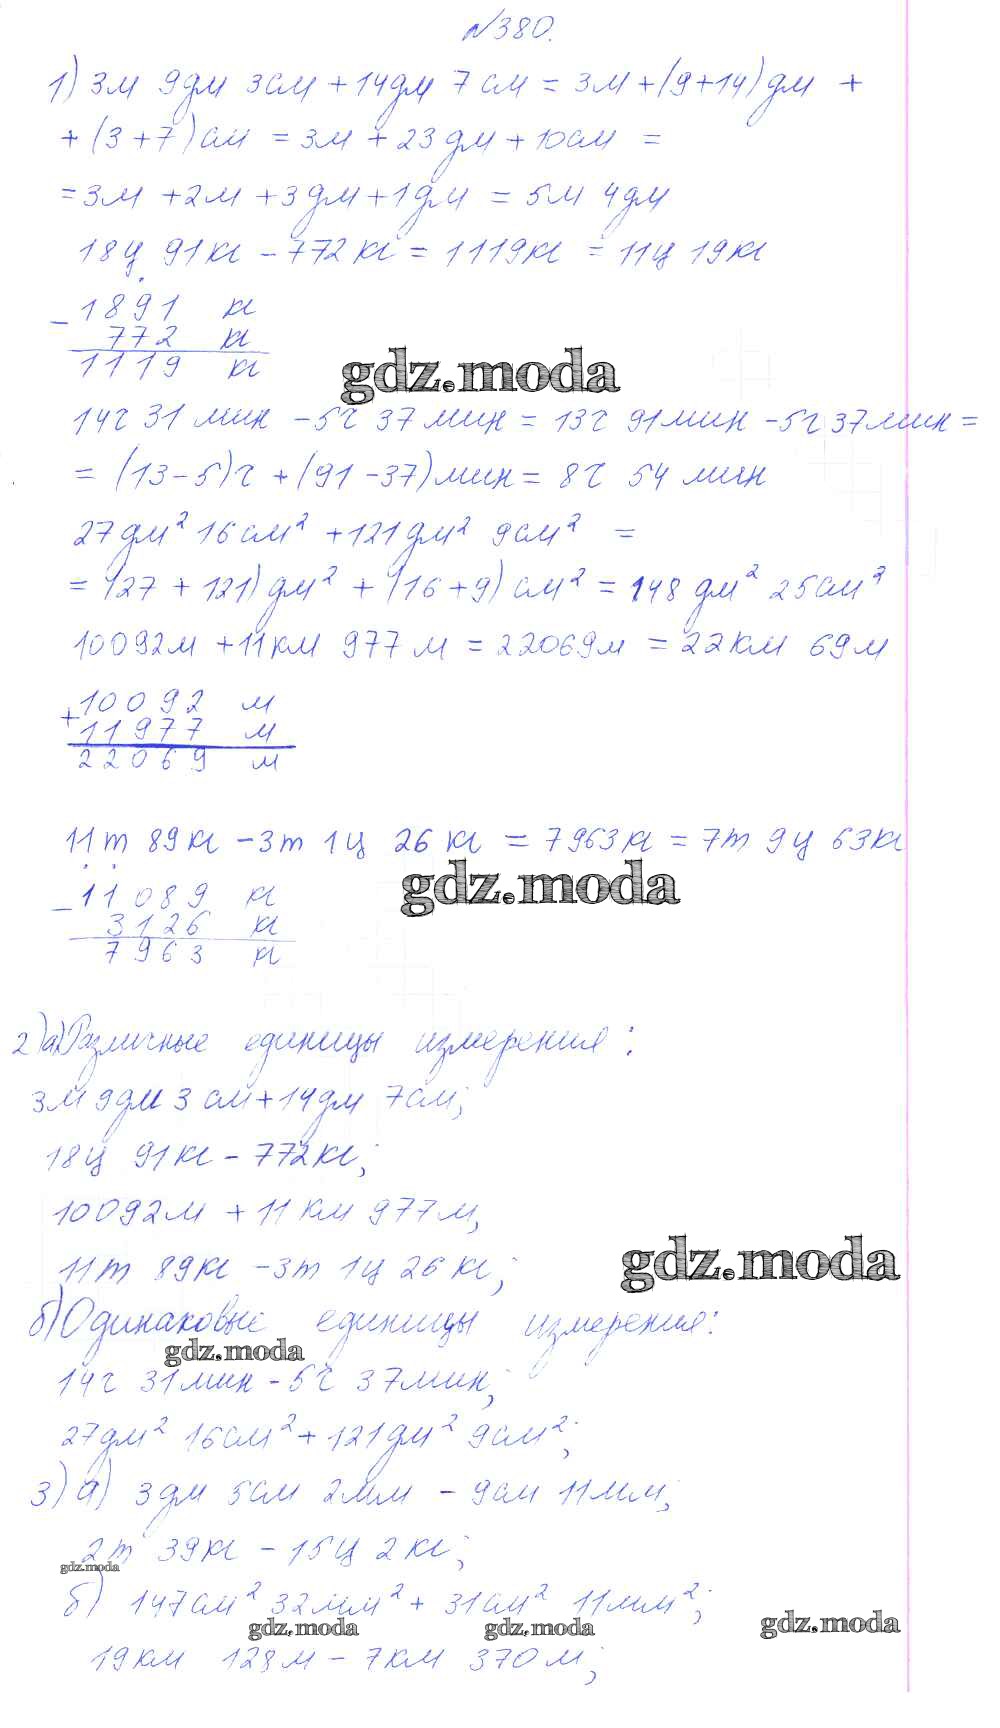 №380.
1) 3м 9дм 3см + 14дм 7см = 3м + (9+14)дм +
+ (3+7)см = 3м + 23дм + 10см =
= 3м + 2м + 3дм + 1дм = 5м 4дм
18ц 91кг - 772кг = 1119кг = 11ц 19кг
- 1891 кг
772 кг
1119 кг
gdz.moda
14ч 31мин - 5ч 37мин = 13ч 91мин - 5ч 37мин =
= (13-5)ч + (91-37)мин = 8ч 54 мин
27дм² 16см² + 121дм² 9см² =
= (27 + 121)дм² + (16+9)см² = 148 дм² 25см²
10092м + 11км 977м = 22069м = 22км 69м
+ 10092 м
11977 м
22069 м
11т 89кг - 3т 1ц 26кг = 7963кг = 7т 9ц 63кг
gdz.moda
- 11089 кг
3126 кг
7963 кг
2) а) Различные единицы измерения:
3м 9дм 3см + 14дм 7см;
18ц 91кг - 772кг;
10092м + 11км 977м;
11т 89кг - 3т 1ц 26кг;
gdz.moda
б) Одинаковые единицы измерения:
gdz.moda
14ч 31мин - 5ч 37мин;
27дм² 16см² + 121дм² 9см²;
3) а) 3дм 5см 2мм - 9см 11мм;
2т 39кг - 15ц 2кг;
gdz.moda
б) 147см² 32мм² + 31см² 11мм²;
gdz.moda gdz.moda gdz.moda
19км 128м - 7км 370м;